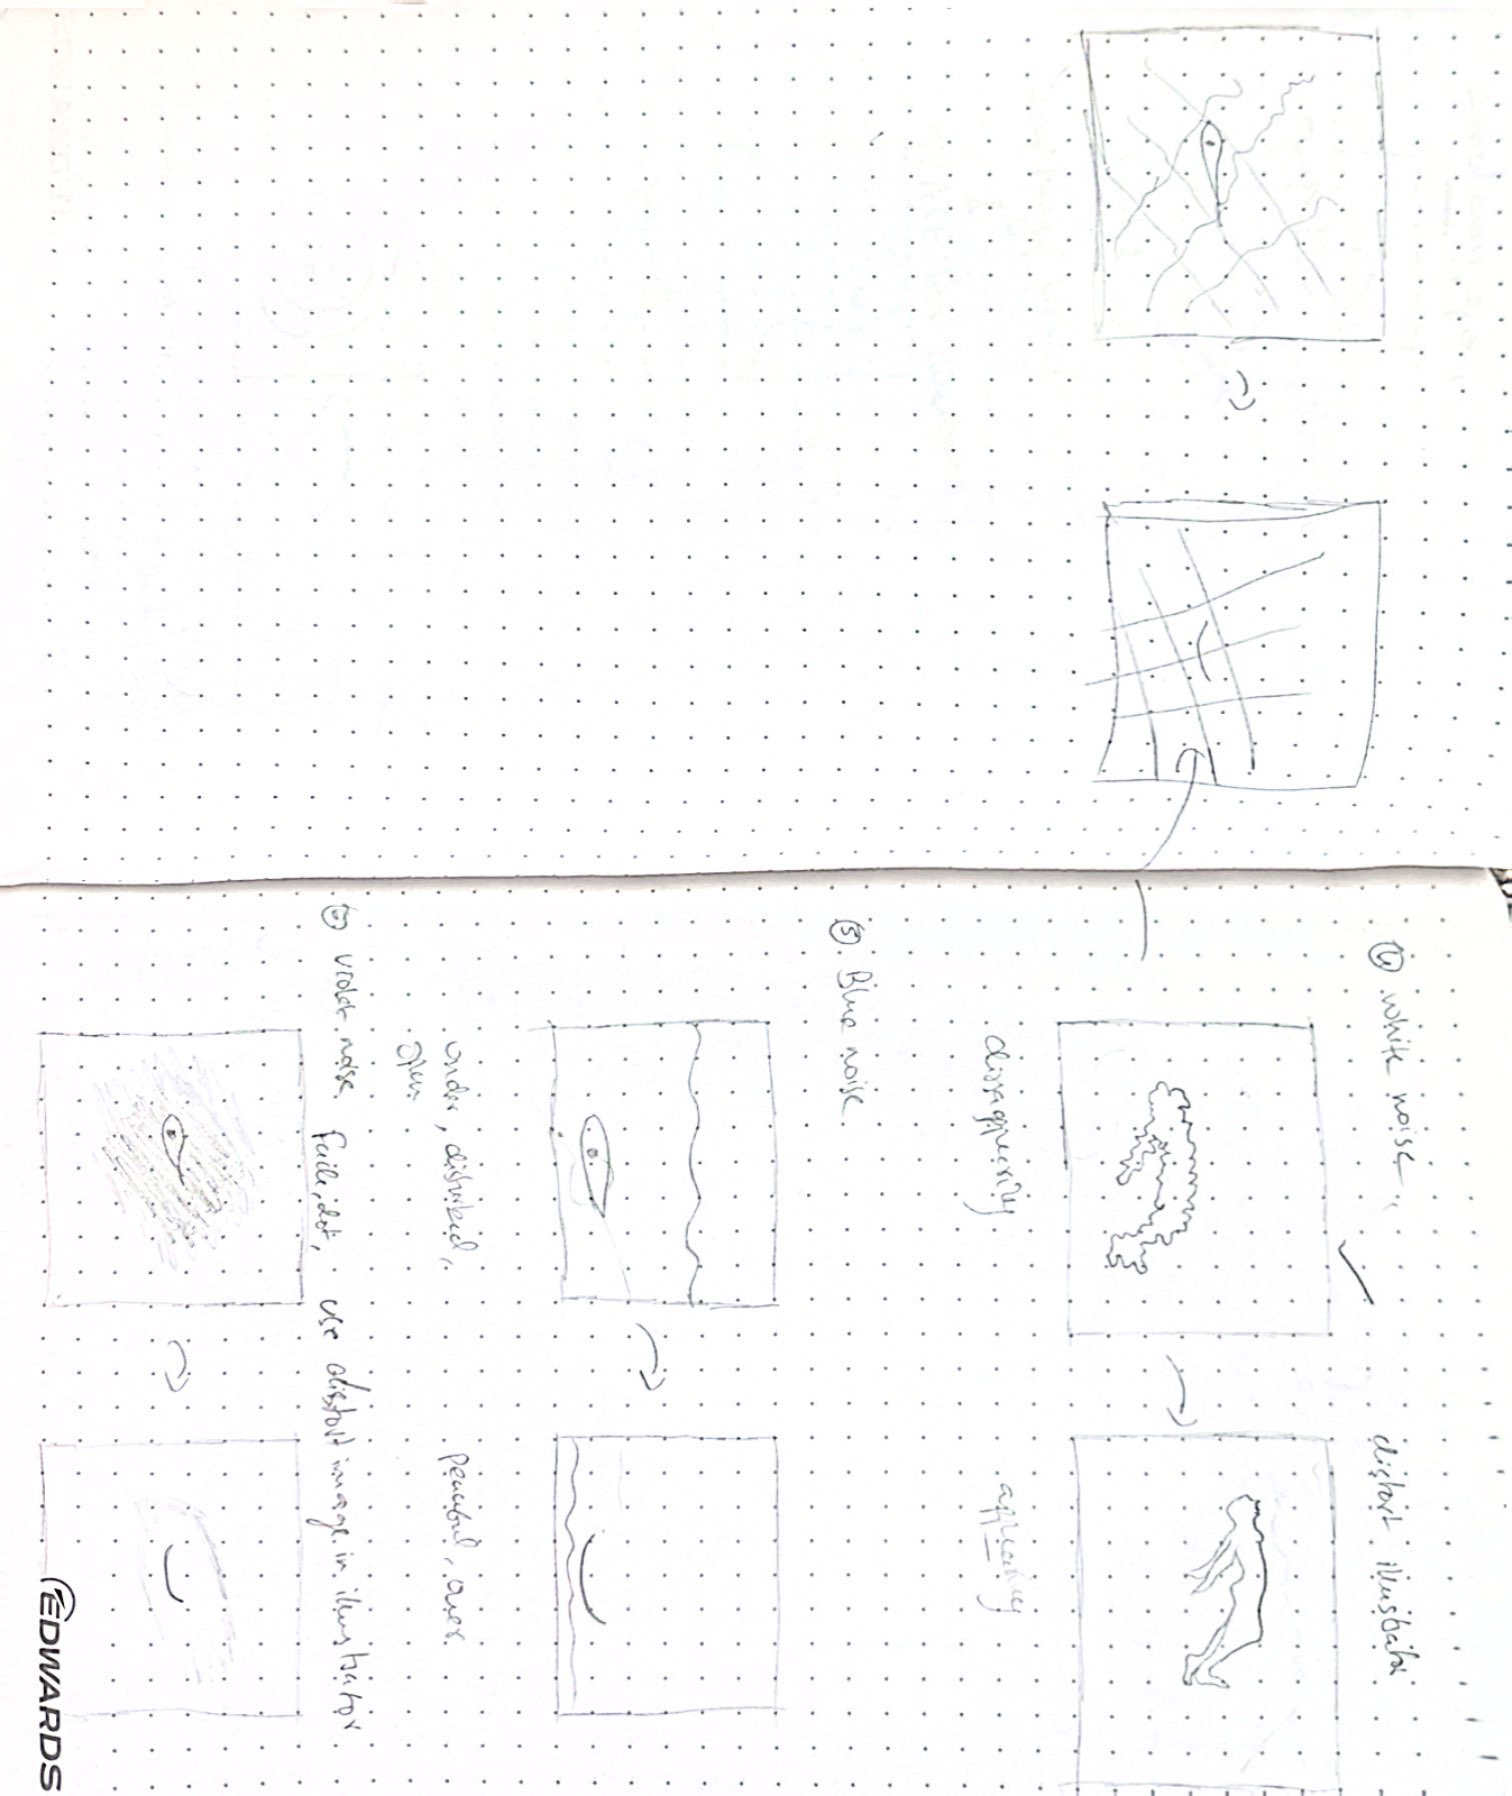 ④ white noise,
distort illustrator
dissappearing
appearing
⑤. Blue noise
under, disturbed,
open
peaceful, over
⑥ violet noise
use distort image in illustrator
EDWARDS